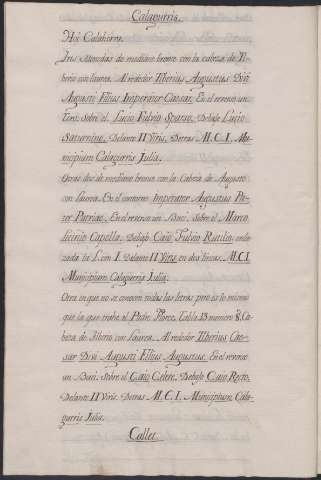 Calagurris.
Hoi Calahorra.
Tres Monedas de mediano bronce con la cabeza de Ti-
berio con laurea. Al rededor Tiberius Augustus Divi
Augusti Filius Imperator Caesar. En el reverso un
Toro. Sobre el. Lucio Fulvio Sparso. Debajo Lucio
Saturnino. Delante II Viris. Detras. M. C. I. Mu-
nicipium Calagurris Julia.
Otras dos de mediano bronce con la Cabeza de Augusto
con laurea. En el contorno Imperator Augustus Pa-
ter Patriae. En el reverso un Buei. Sobre el Marco
licinio Capella. Debajo Caio Fulvio Rutilio: enla-
zada la L con I. Delante II Viris en dos lineas. M. C. I
Municipium Calagurris Julia.
Otra en que no se conocen todas las letras pero es lo mismo
que la que trahe el Padre Florez. Tabla 13 numero 8. Ca-
beza de Tiberio con Laurea. Al rededor Tiberius Cae-
sar Divi Augusti Filius Augustus. En el reverso
un Buei. Sobre el Caio Celere. Debajo Caio Recto.
Delante II Viris. Detras M. C. I. Municipium Cala-
gurris Julia.
Callet.